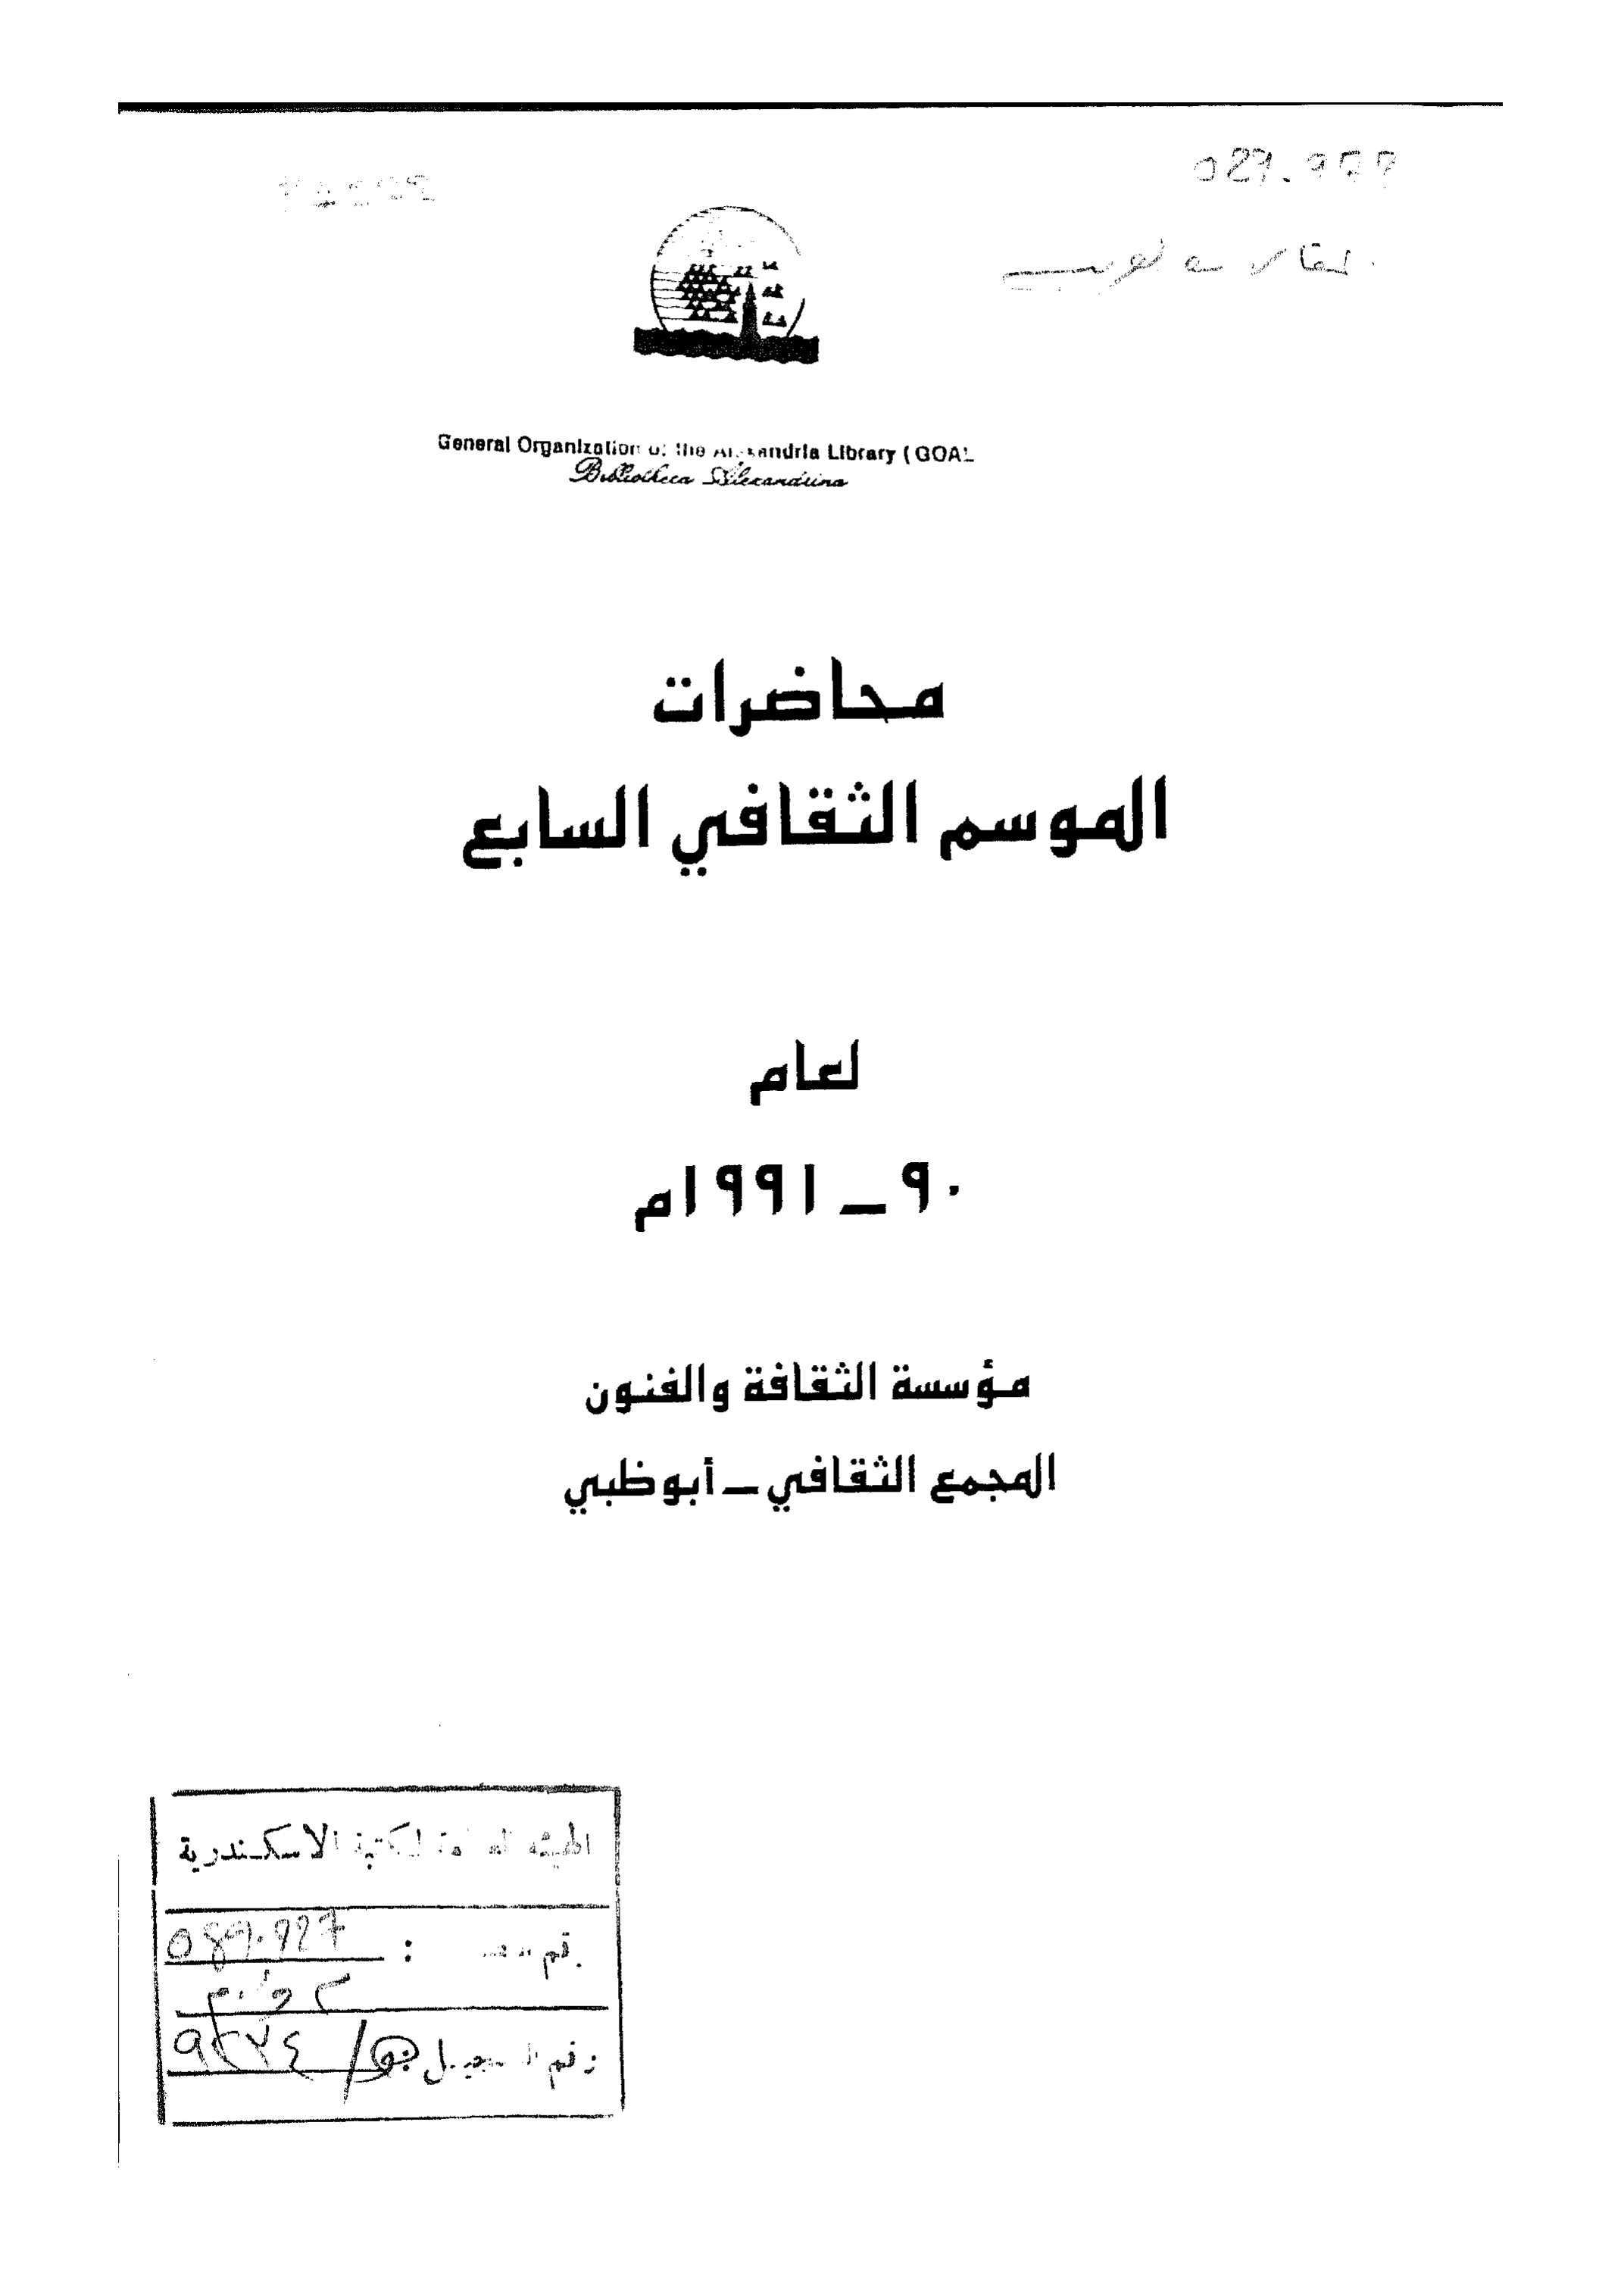 General Organization of the Alexandria Library (GOAL
Bibliotheca Alexandrina
محاضرات
الموسم الثقافي السابع
لعام
٩٠ ــ ١٩٩١م
مؤسسة الثقافة والفنون
المجمع الثقافي ــ أبوظبي
الهيئة العامة لمكتبة الاسكندرية
رقم التسجيل